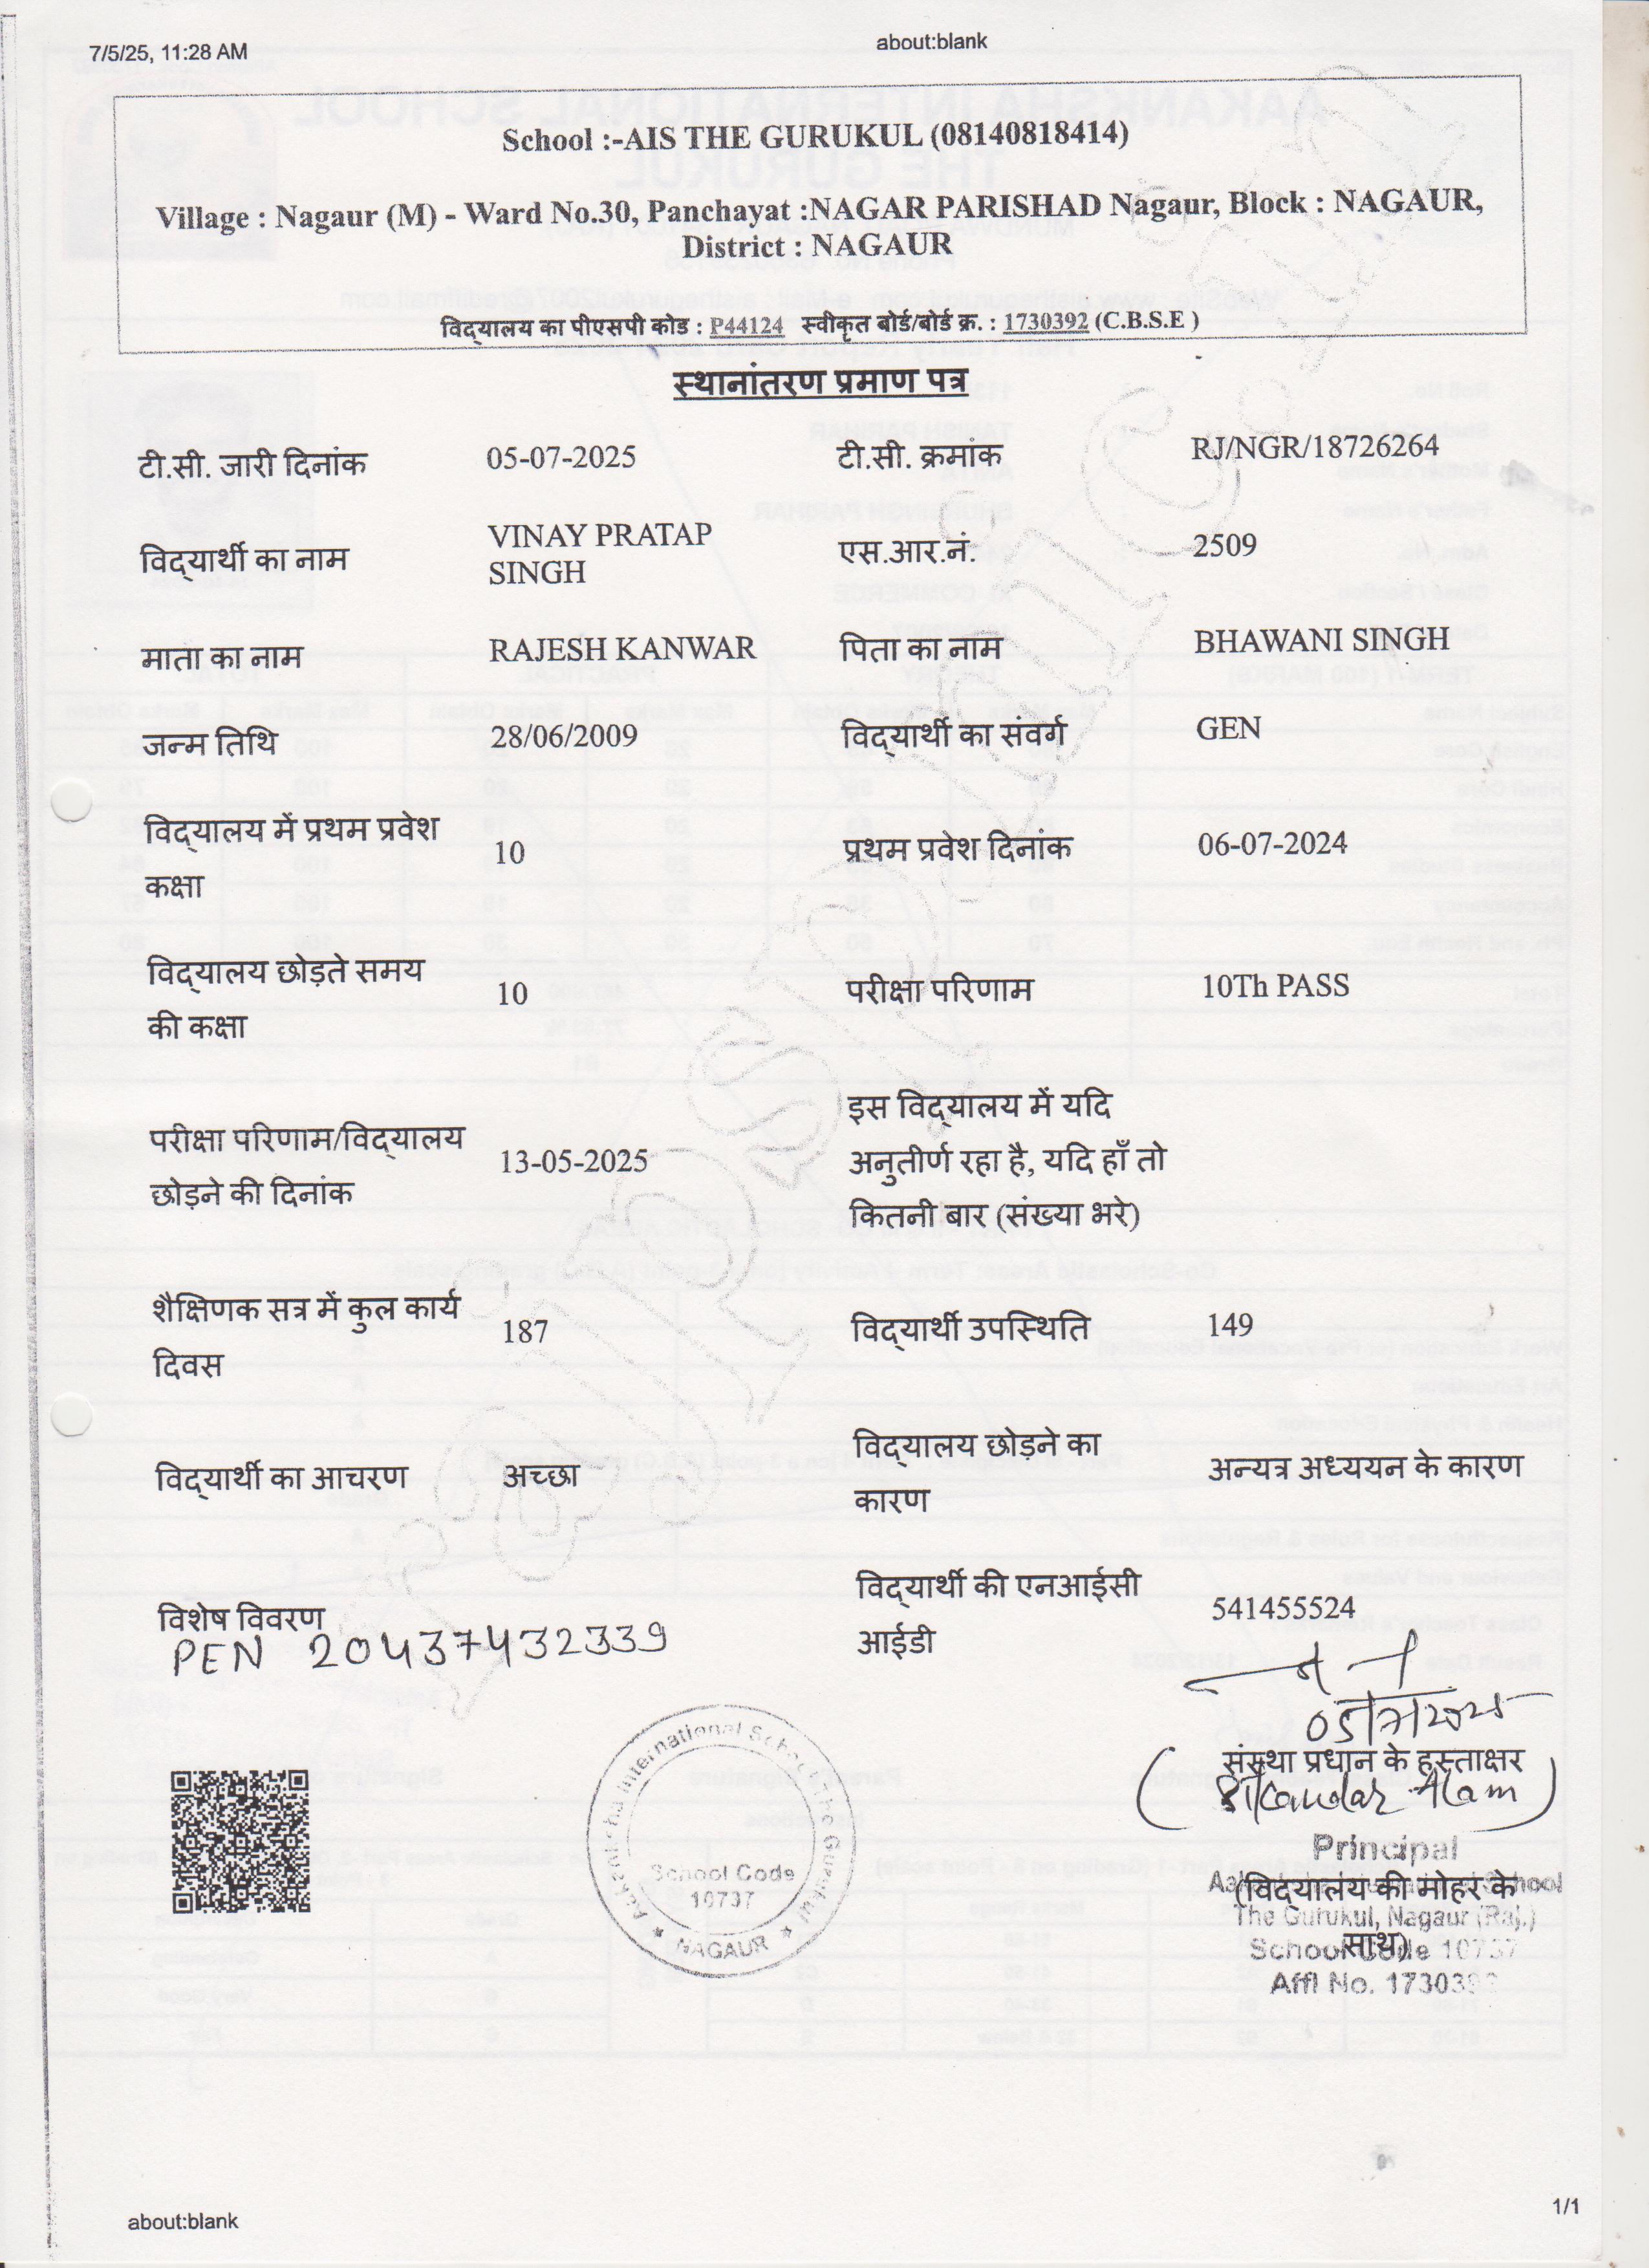 7/5/25, 11:28 AM
about:blank
School :-AIS THE GURUKUL (08140818414)
Village : Nagaur (M) - Ward No.30, Panchayat :NAGAR PARISHAD Nagaur, Block : NAGAUR,
District : NAGAUR
विद्यालय का पीएसपी कोड : P44124 स्वीकृत बोर्ड/बोर्ड क्र. : 1730392 (C.B.S.E )
स्थानांतरण प्रमाण पत्र
टी.सी. जारी दिनांक 05-07-2025 टी.सी. क्रमांक RJ/NGR/18726264
विद्यार्थी का नाम VINAY PRATAP
SINGH
एस.आर.नं. 2509
माता का नाम RAJESH KANWAR पिता का नाम BHAWANI SINGH
जन्म तिथि 28/06/2009 विद्यार्थी का संवर्ग GEN
विद्यालय में प्रथम प्रवेश
कक्षा
10
प्रथम प्रवेश दिनांक 06-07-2024
विद्यालय छोड़ते समय
की कक्षा
10
परीक्षा परिणाम 10Th PASS
परीक्षा परिणाम/विद्यालय
छोड़ने की दिनांक
13-05-2025
इस विद्यालय में यदि
अनुतीर्ण रहा है, यदि हाँ तो
कितनी बार (संख्या भरे)
शैक्षिणक सत्र में कुल कार्य
दिवस
187
विद्यार्थी उपस्थिति 149
विद्यार्थी का आचरण अच्छा
विद्यालय छोड़ने का
कारण
अन्यत्र अध्ययन के कारण
विशेष विवरण
PEN 20437432339
विद्यार्थी की एनआईसी
आईडी
541455524
05/7/2025
संस्था प्रधान के हस्ताक्षर
(Sikandar Alam)
Principal
(विद्यालय की मोहर के
साथ)
The Gurukul, Nagaur (Raj.)
School Code 10737
Affl No. 1730392
Aakanksha International School The Gurukul
School Code
10737
★ NAGAUR ★
about:blank
1/1